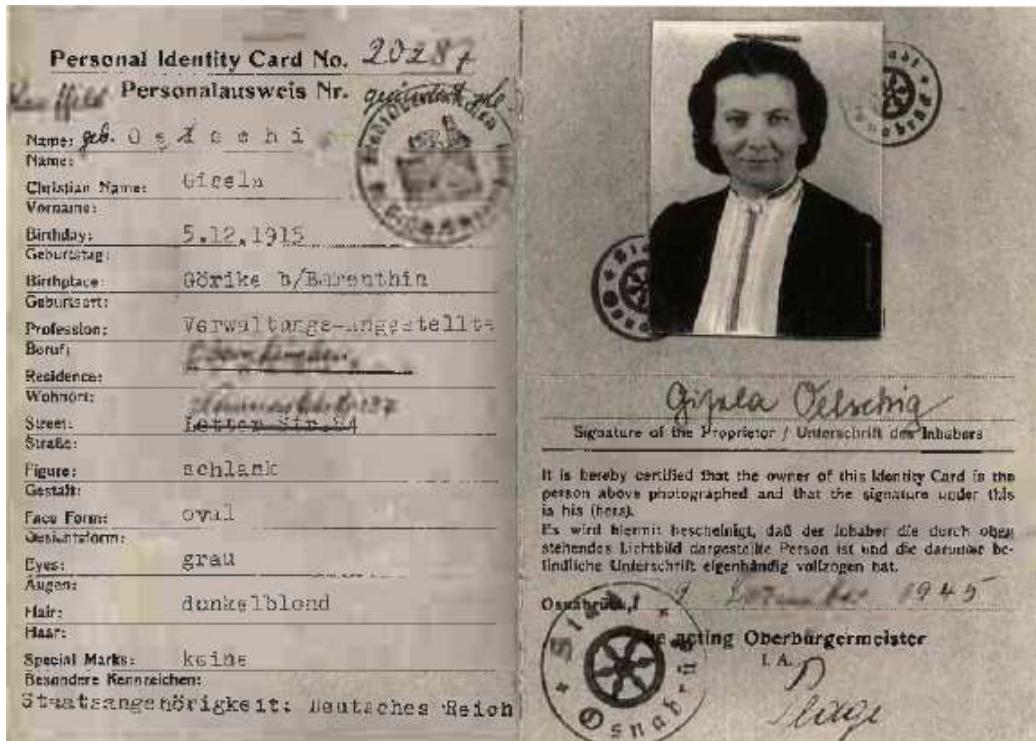 Personal Identity Card No. 20287
Personalausweis Nr.
Name: geb.
Name:
Christian Name: Gisela
Vorname:
Birthday: 5.12.1915
Geburtstag:
Birthplace: Görike b/Barenthin
Geburtsort:
Profession: Verwaltungs-angestellte
Beruf:
Residence:
Wohnort:
Street: Str.
Straße:
Figure: schlank
Gestalt:
Face Form: oval
Gesichtsform:
Eyes: grau
Augen:
Hair: dunkelblond
Haar:
Special Marks: keine
Besondere Kennzeichen:
Staatsangehörigkeit: Deutsches Reich
Stadt Osnabrück
Stadt Osnabrück
Gisela Oelschig
Signature of the Proprietor / Unterschrift des Inhabers
It is hereby certified that the owner of this Identity Card is the
person above photographed and that the signature under this
is his (hers).
Es wird hiermit bescheinigt, daß der Inhaber die durch oben
stehendes Lichtbild dargestellte Person ist und die darunter be-
findliche Unterschrift eigenhändig vollzogen hat.
Osnabrück, 1945
The acting Oberbürgermeister
I. A.
Stadt Osnabrück